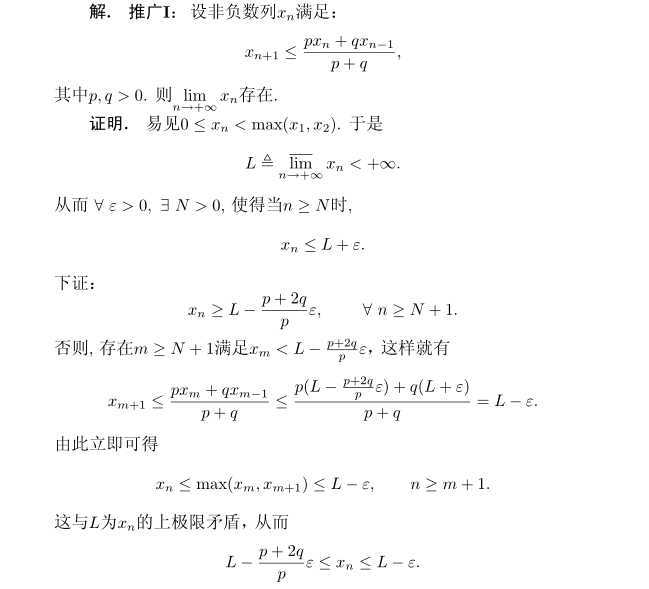 解. 推广I: 设非负数列$x_n$满足:
$$x_{n+1} \leq \frac{px_n + qx_{n-1}}{p+q},$$
其中$p, q > 0$. 则$\lim\limits_{n\to+\infty} x_n$存在.
证明. 易见$0 \leq x_n < \max(x_1, x_2)$. 于是
$$L \triangleq \varlimsup_{n\to+\infty} x_n < +\infty.$$
从而 $\forall\ \varepsilon > 0,\ \exists\ N > 0$, 使得当$n \geq N$时,
$$x_n \leq L + \varepsilon.$$
下证:
$$x_n \geq L - \frac{p+2q}{p}\varepsilon, \qquad \forall\ n \geq N+1.$$
否则, 存在$m \geq N+1$满足$x_m < L - \frac{p+2q}{p}\varepsilon$, 这样就有
$$x_{m+1} \leq \frac{px_m + qx_{m-1}}{p+q} \leq \frac{p(L - \frac{p+2q}{p}\varepsilon) + q(L+\varepsilon)}{p+q} = L - \varepsilon.$$
由此立即可得
$$x_n \leq \max(x_m, x_{m+1}) \leq L - \varepsilon, \qquad n \geq m+1.$$
这与$L$为$x_n$的上极限矛盾, 从而
$$L - \frac{p+2q}{p}\varepsilon \leq x_n \leq L - \varepsilon.$$